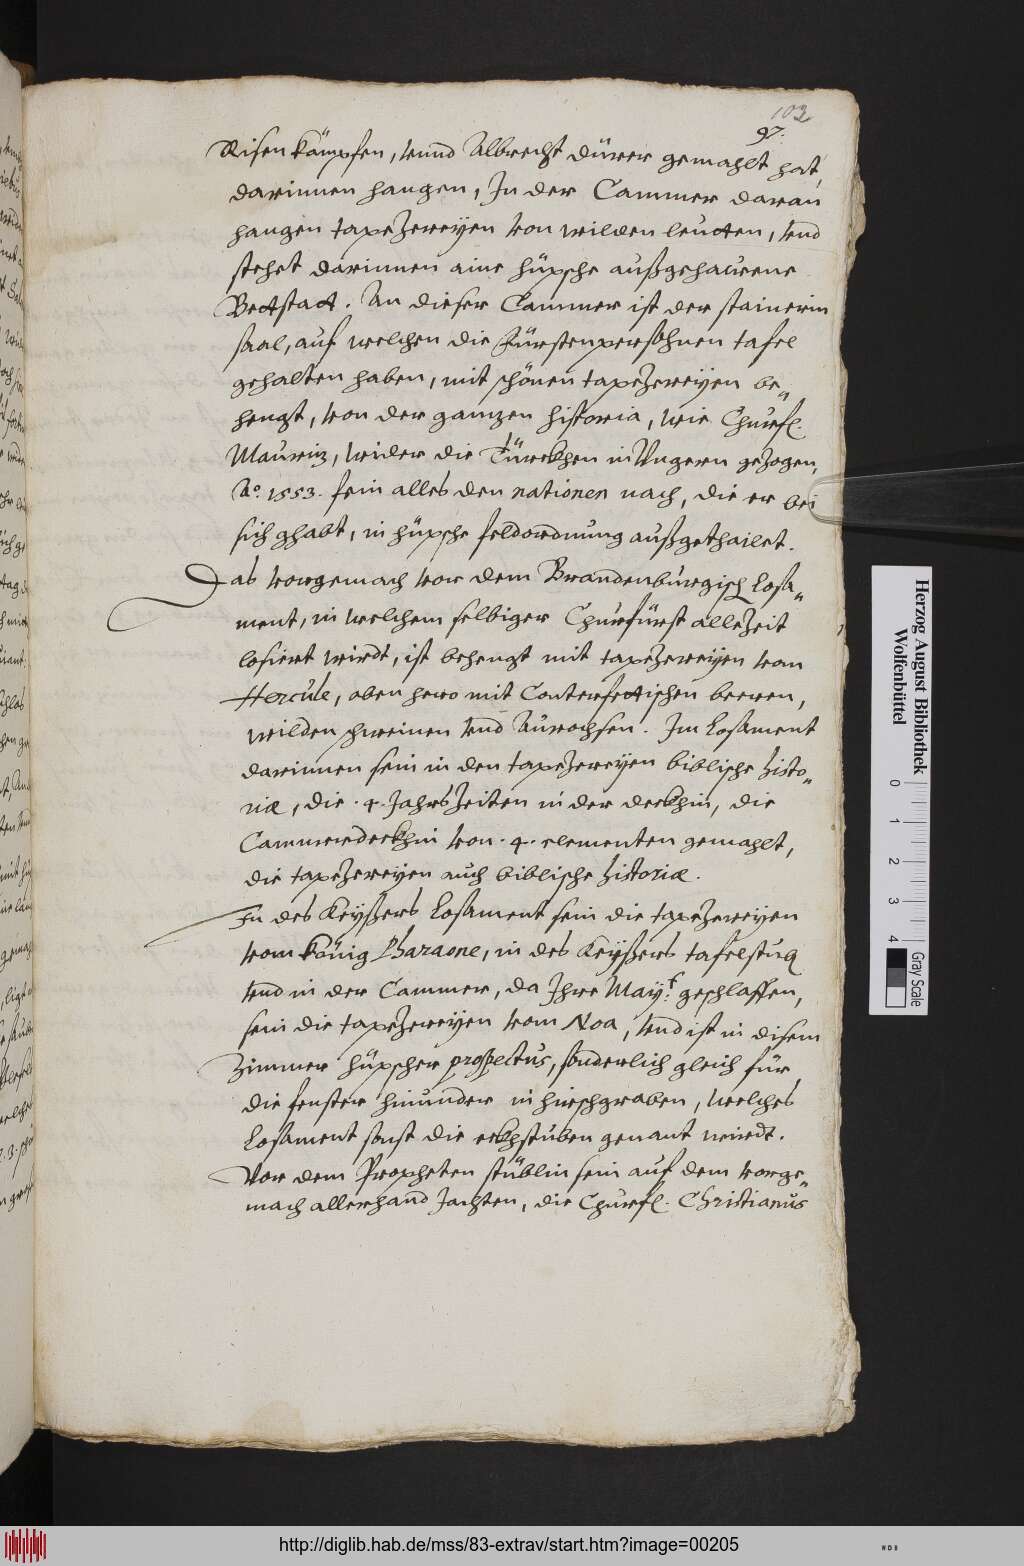 103
97.
Risen kämpfen, vnnd Albrecht Dürer gemahlt hat,
darinnen hangen, In der Cammer daran
hangen tapezereyen von wilden leutten, vnd
stehet darinnen aine hüpsche außgehawene
Bettstatt. An dieser Cammer ist der stainerin
saal, auf welchen die Fürstenpersohnen tafel
gehalten haben, mit schönen tapezereyen be„
hengt, von der gantzen historia, wie Churf.
Mauritz, wider die Türckhen in Vngern gezogen,
Aº. 1553. sein alles den nationen nach, die er bei
sich ghabt, in hüpsche feldordnung außgethailet.
Das vorgemach vor dem Brandenburgisch Losa„
ment, in welchem selbiger Churfürst allezeit
losiert wirdt, ist behengt mit tapezereyen vom
Hercule, oben hero mit Conterfettischen beeren,
wilden schweinen vnd Aurochsen. Im Losament
darinnen sein in den tapezereyen biblische histo„
riæ, die .4. Jahrszeiten in der deckhin, die
Cammerdeckhin von .4. elementen gemahlt,
die tapezereyen auch biblische historiæ.
In des Keyßers Losament sein die tapezereyen
vom könig Pharaone, in des Keyßers tafelstub
vnd in der Cammer, da Ihre May:t geschlaffen,
sein die tapezereyen vom Noa, vnd ist in disem
Zimmer hüpscher prospectus, sonderlich gleich für
die fenster hinunder in hirschgraben, welches
Losament sonst die eckhstuben genant wirdt.
Vor dem Propheten stüblin sein auf dem vorge„
mach allerhand Jachten, die Churf. Christianus
Herzog August Bibliothek
Wolfenbüttel
0 1 2 3 4
Gray Scale
http://diglib.hab.de/mss/83-extrav/start.htm?image=00205